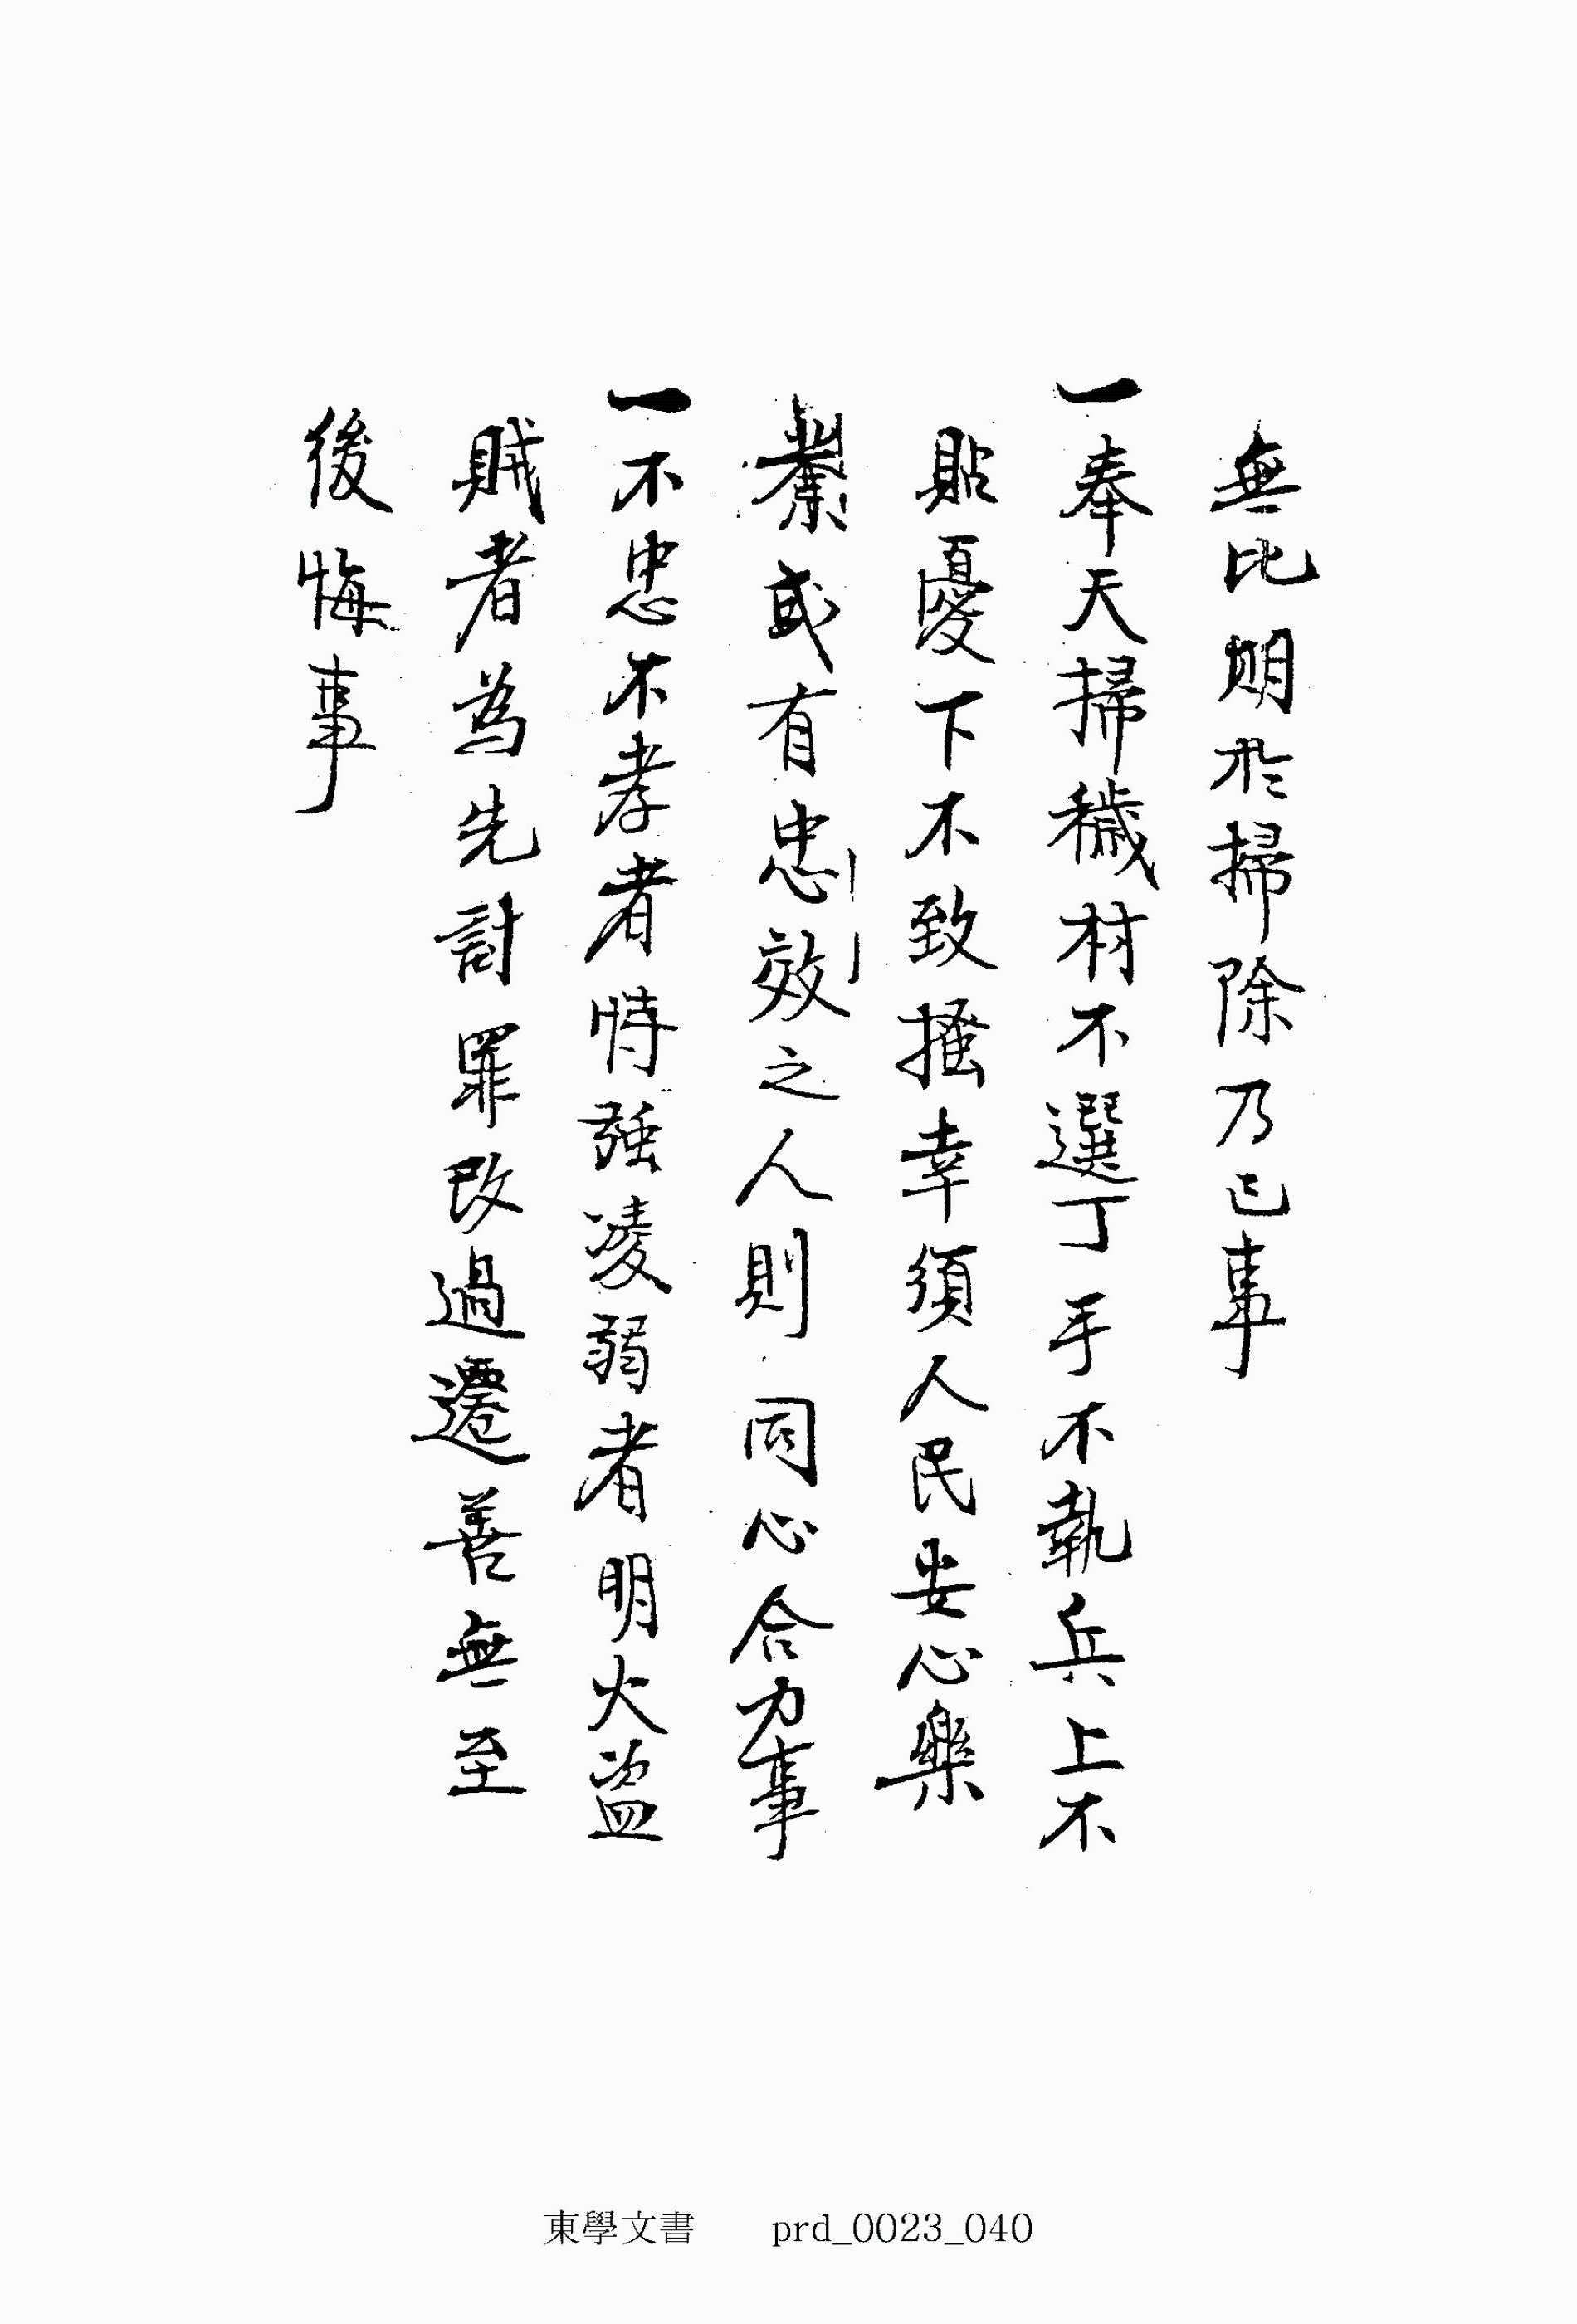 無比期於掃除乃已事
一奉天掃穢材不選丁手不執兵上不
貽憂下不致搔幸須人民安心樂
業或有忠效之人則同心合力事
一不忠不孝者恃强凌弱者明火盜
賊者為先討罪改過遷善無至
後悔事
東學文書 prd_0023_040